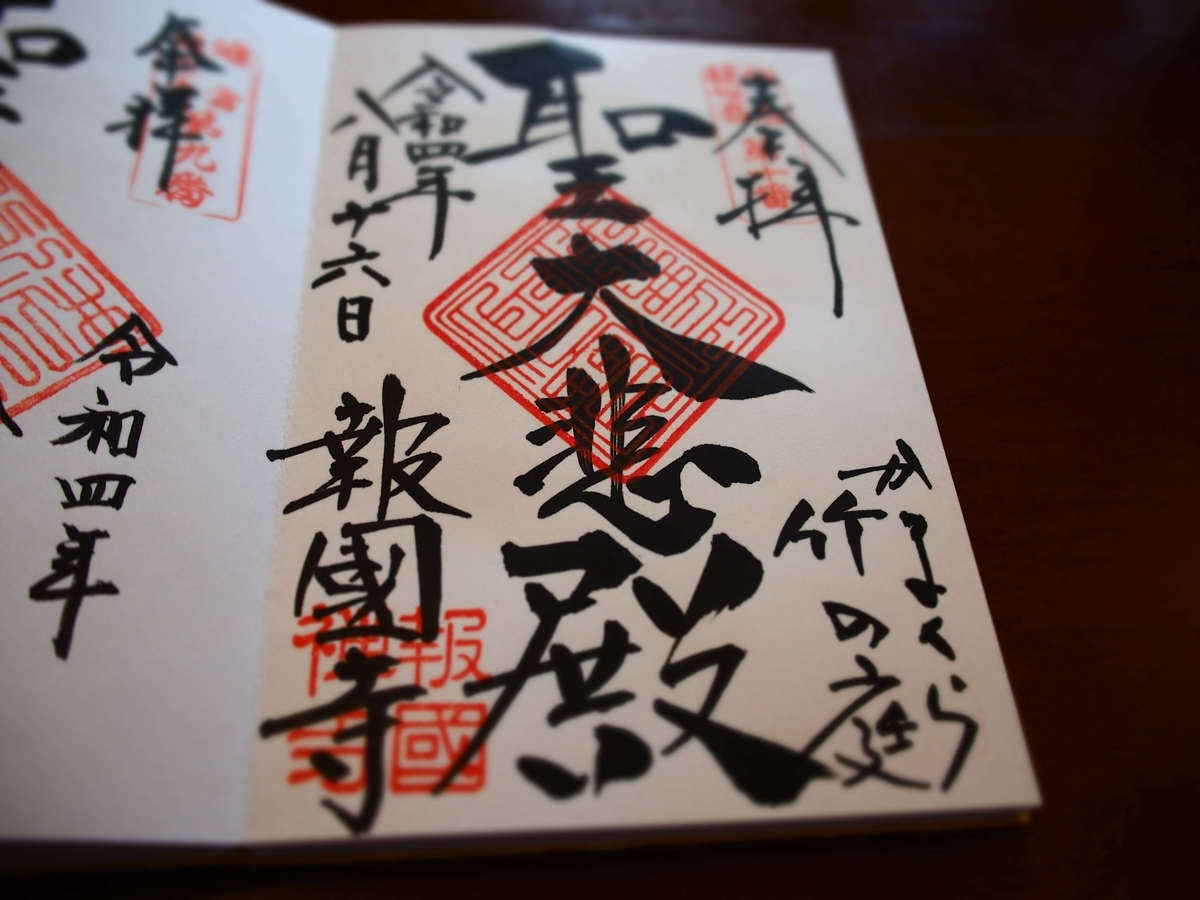 奉拝
第十番
かまくら
竹の庭
聖大悲殿
令和四年
八月十六日
報國寺
報國
禅寺
奉拝
鎌倉第九番
令和四年